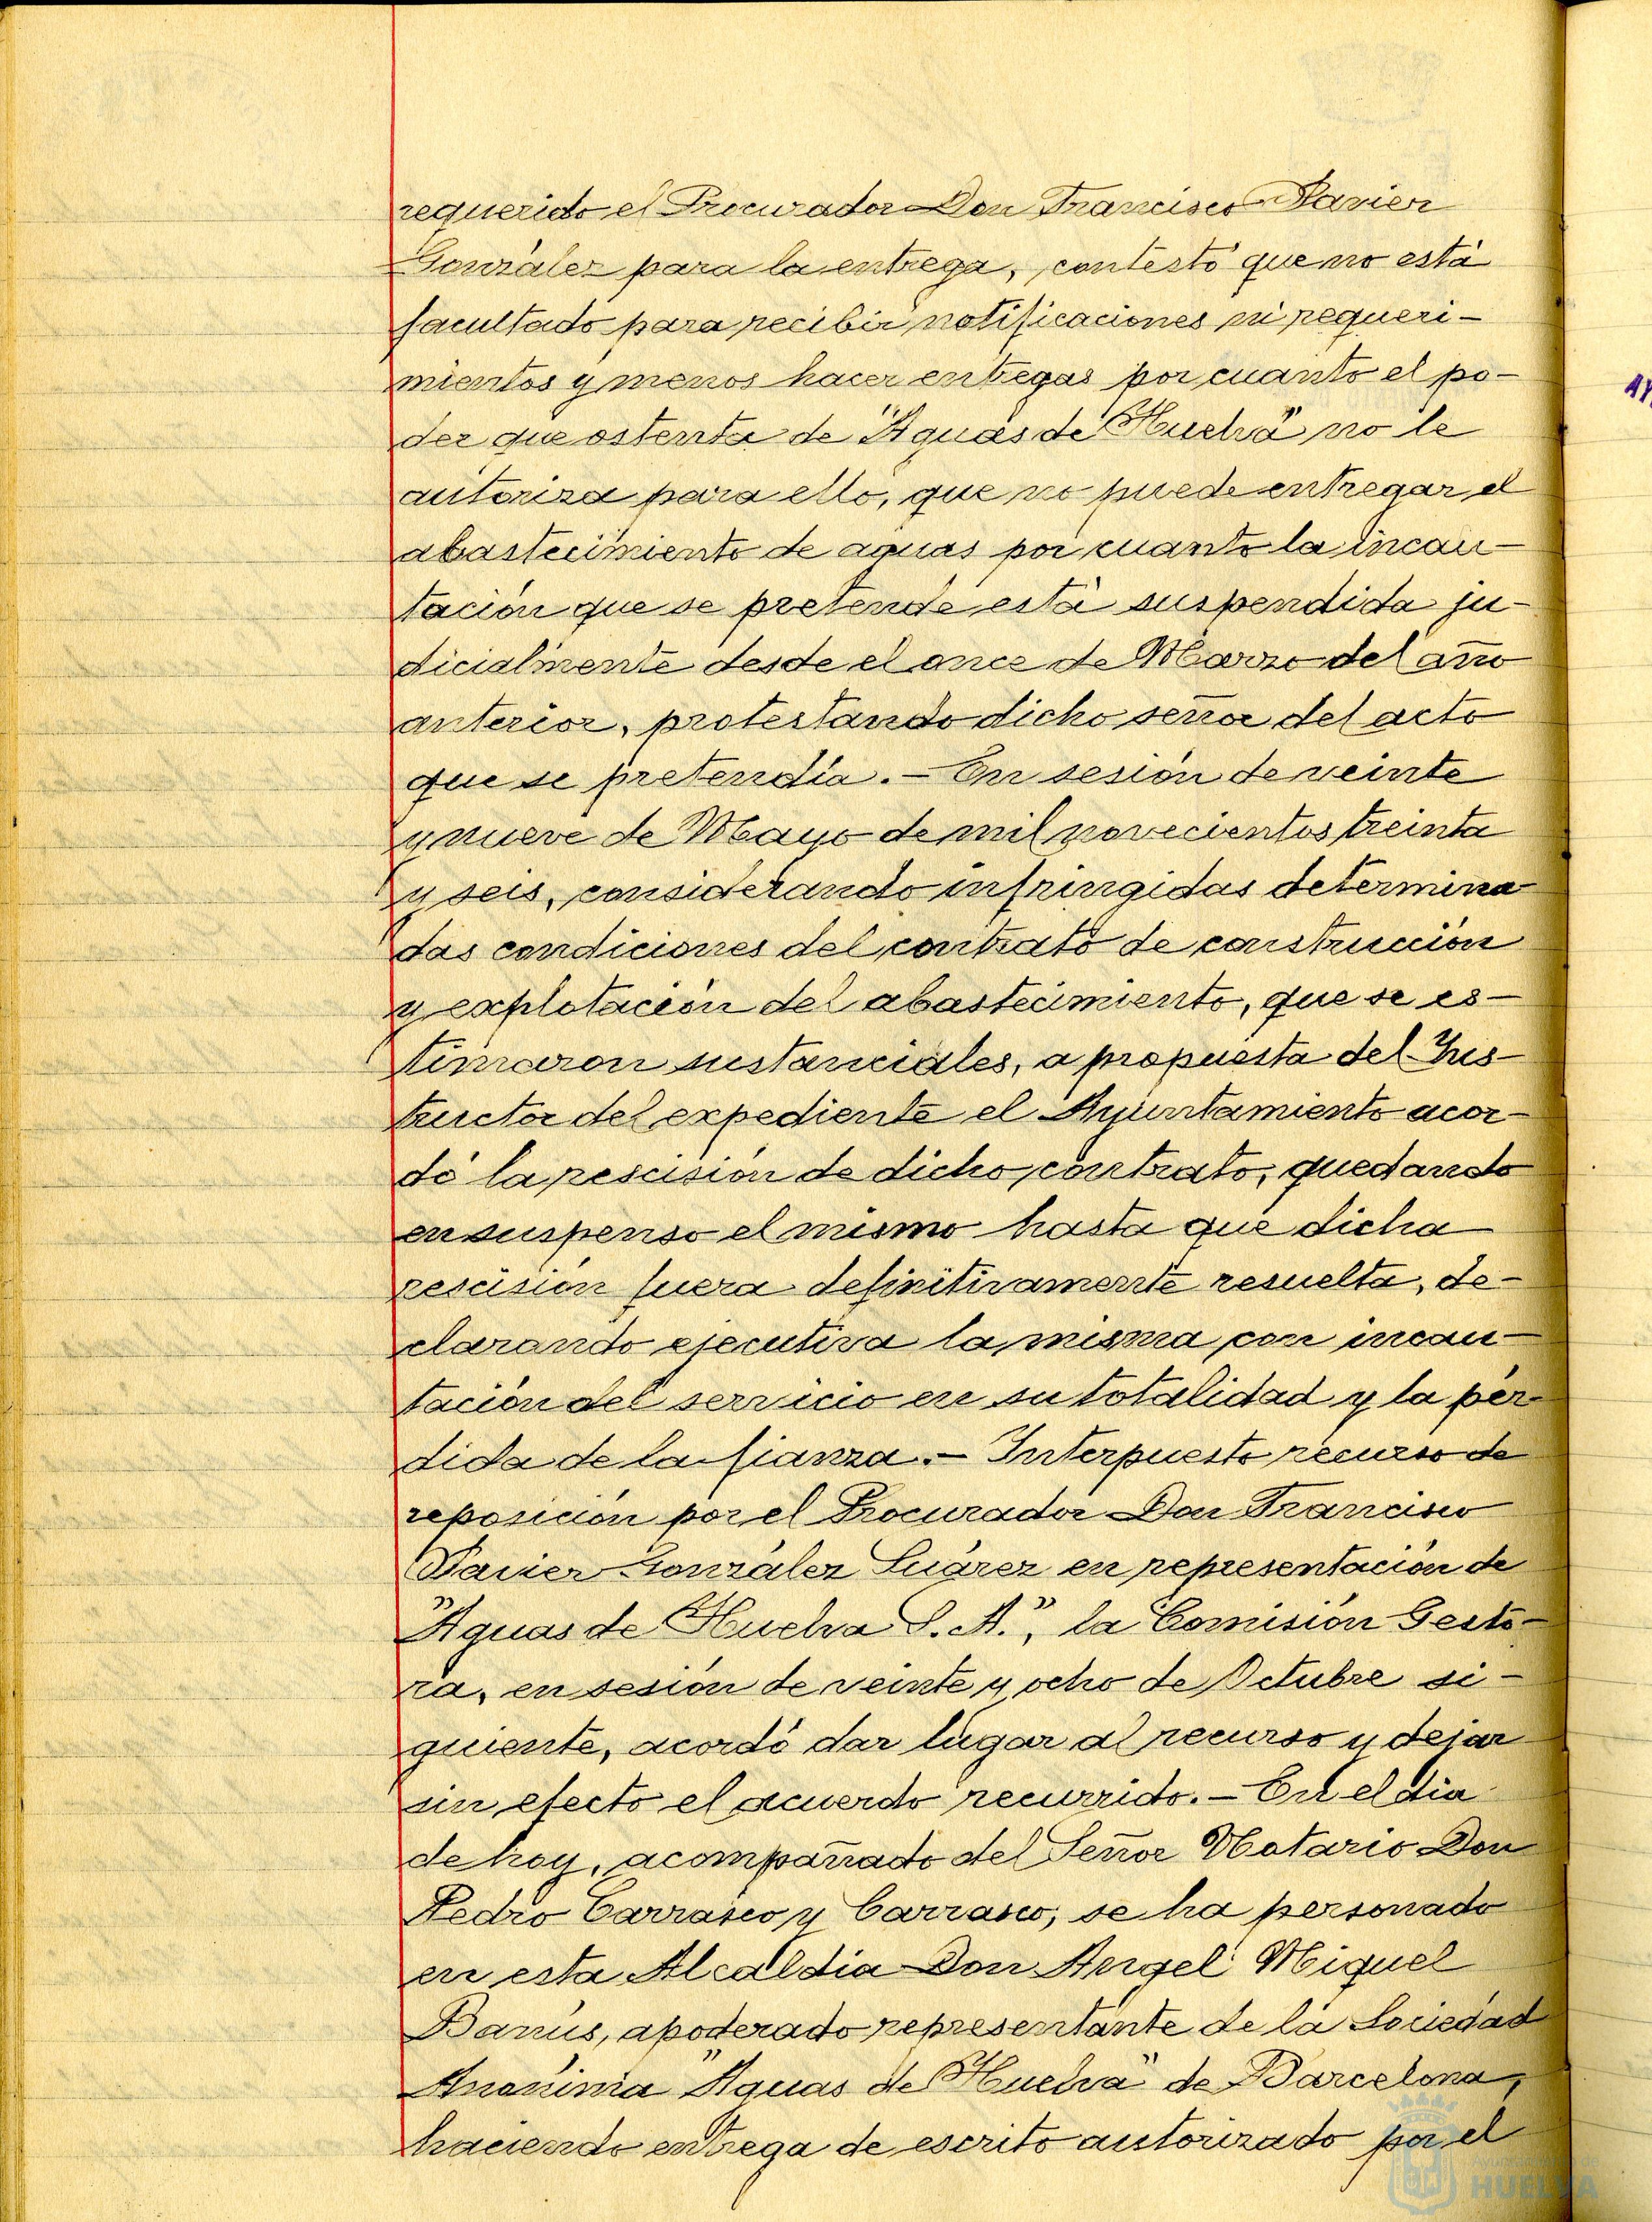 requerido el Procurador Don Francisco Xavier
González para la entrega, contestó que no está
facultado para recibir notificaciones ni requeri-
mientos y menos hacer entregas por cuanto el po-
der que ostenta de "Aguas de Huelva" no le
autoriza para ello, que no puede entregar el
abastecimiento de aguas por cuanto la incau-
tación que se pretende está suspendida ju-
dicialmente desde el once de Marzo del año
anterior, protestando dicho señor del acto
que se pretendía.- En sesión de veinte
y nueve de Mayo de mil novecientos treinta
y seis, considerando infringidas determina
das condiciones del contrato de construcción
y explotación del abastecimiento, que se es-
timaron sustanciales, a propuesta del Ins-
tructor del expediente el Ayuntamiento acor-
dó la rescisión de dicho contrato, quedando
en suspenso el mismo hasta que dicha
rescisión fuera definitivamente resuelta, de-
clarando ejecutiva la misma con incau-
tación del servicio en su totalidad y la pér-
dida de la fianza.- Interpuesto recurso de
reposición por el Procurador Don Francisco
Xavier González Suárez en representación de
"Aguas de Huelva S. A.", la Comisión Gesto-
ra, en sesión de veinte y ocho de Octubre si-
guiente, acordó dar lugar al recurso y dejar
sin efecto el acuerdo recurrido.- En el día
de hoy, acompañado del Señor Notario Don
Pedro Carrasco y Carrasco, se ha personado
en esta Alcaldia Don Angel Miquel
Banús, apoderado representante de la Sociedad
Anonima "Aguas de Huelva" de Barcelona,
haciendo entrega de escrito autorizado por el
Ayuntamiento de
HUELVA